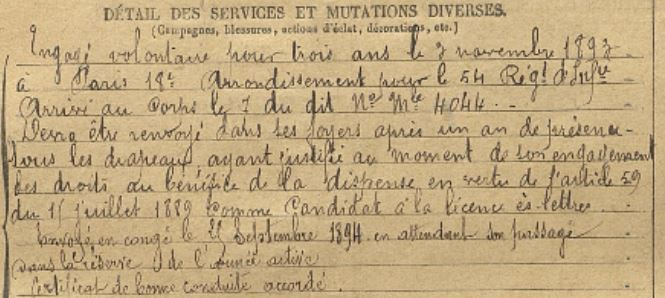 DÉTAIL DES SERVICES ET MUTATIONS DIVERSES.
(Campagnes, blessures, actions d'éclat, décorations, etc.)
Engagé volontaire pour trois ans le 7 novembre 1893
à Paris 18e Arrondissement pour le 54 Régt d'Infie
Arrivé au Corps le 7 du dit No Mle 4044. -
Devra être renvoyé dans ses foyers après un an de présence
sous les drapeaux, ayant justifié au moment de son engagement
des droits au bénéfice de la dispense en vertu de l'article 59
du 15 juillet 1889 comme Candidat à la licence ès-lettres
Envoyé en congé le Septembre 1894 en attendant son passage
dans la réserve de l'armée active
Certificat de bonne conduite accordé.